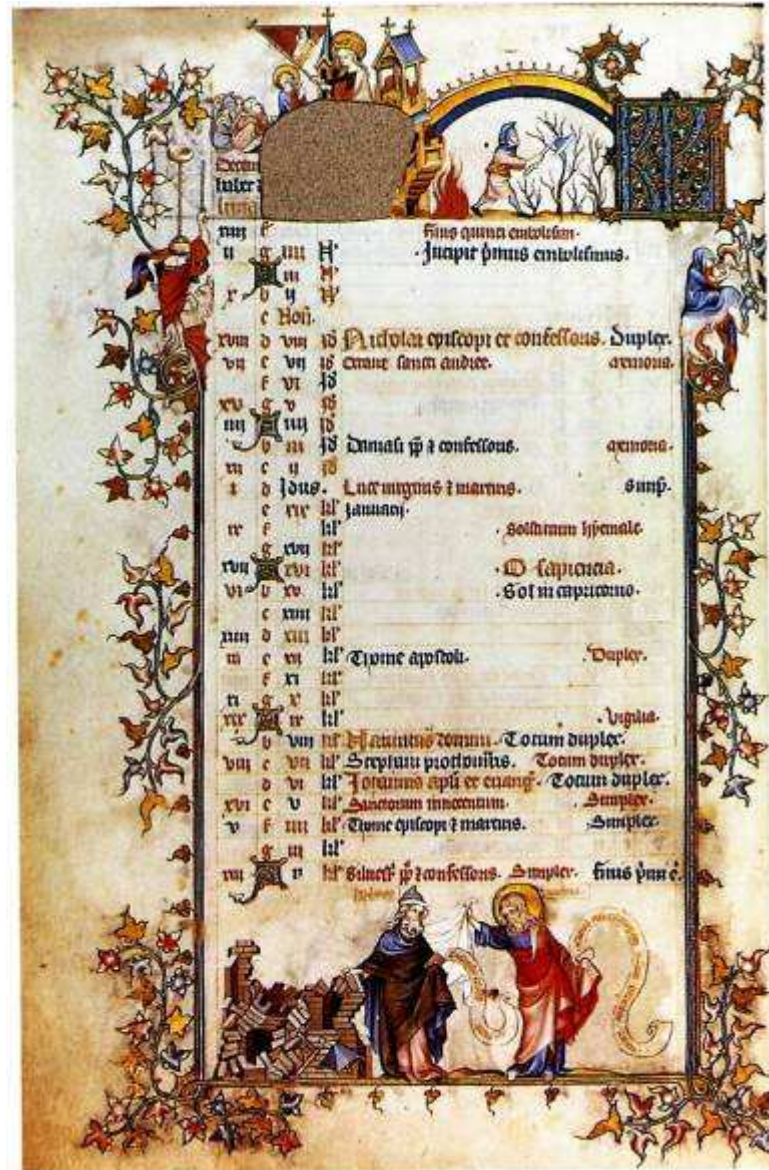 xiiij f finis quinti embolism.
ii g iiii N' Incipit p̄mus embolismus.
A iii N'
x b ij N'
c Non.
xviij d viij id Nicholai episcopi et confessoris. Duplex.
vij e vij id Octave sancti andree. memoria.
f vi id
xv g v id
iiij A iiij id
b iii id Damasi pp̄ & confessoris. memoria.
xij c ij id
i d Idus. Lucie virginis & martiris. simp̄.
e xix kl' Januarij.
ix f kl' Solsticium hyemale.
g xvij kl'
xvij A xvi kl' O sapiencia.
vi b xv kl' Sol in capricorno.
c xiiij kl'
xiiij d xiii kl'
iii e xij kl' Thome apostoli. Duplex.
f xi kl'
xi g x kl'
xix A ix kl' Vigilia.
b viij kl' Nativitas domini. Totum duplex.
viij c vij kl' Stephani prothomris. Totum duplex.
d vi kl' Johannis apli et euang. Totum duplex.
xvi e v kl' Sanctorum innocentum. Simplex.
v f iiij kl' Thome episcopi & martiris. Simplex.
g iii kl'
xiij A ij kl' Silvest' pp̄ & confessoris. Simplex. finis p̄mi e.